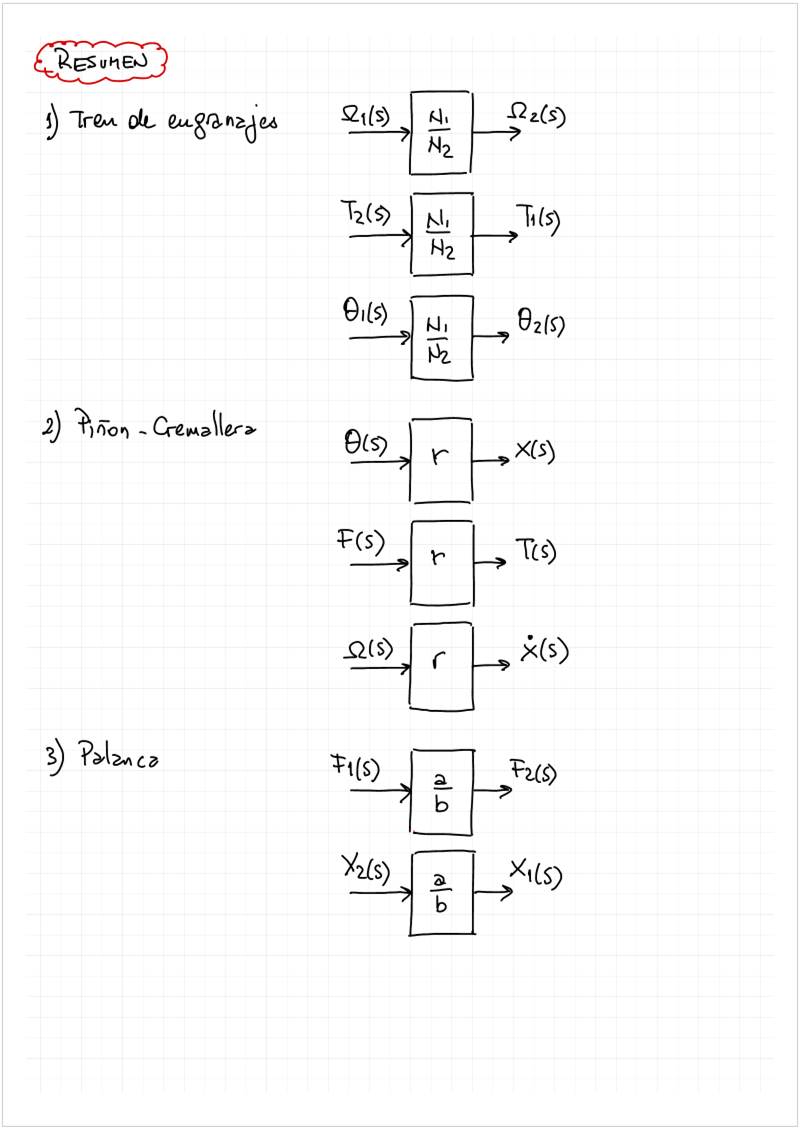 RESUMEN
1) Tren de engranajes
Ω1(s) N1/N2 Ω2(s)
T2(s) N1/N2 T1(s)
θ1(s) N1/N2 θ2(s)
2) Piñon - Cremallera
θ(s) r X(s)
F(s) r T(s)
Ω(s) r Ẋ(s)
3) Palanca
F1(s) a/b F2(s)
X2(s) a/b X1(s)